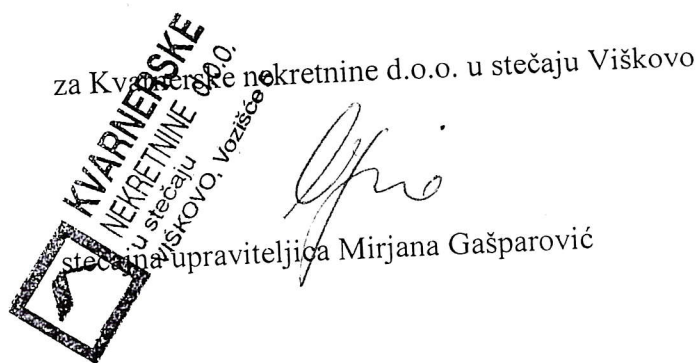 za Kvarnerske nekretnine d.o.o. u stečaju Viškovo
KVARNERSKE
NEKRETNINE d.o.o.
u stečaju
VIŠKOVO, Vozišće
stečajna upraviteljica Mirjana Gašparović